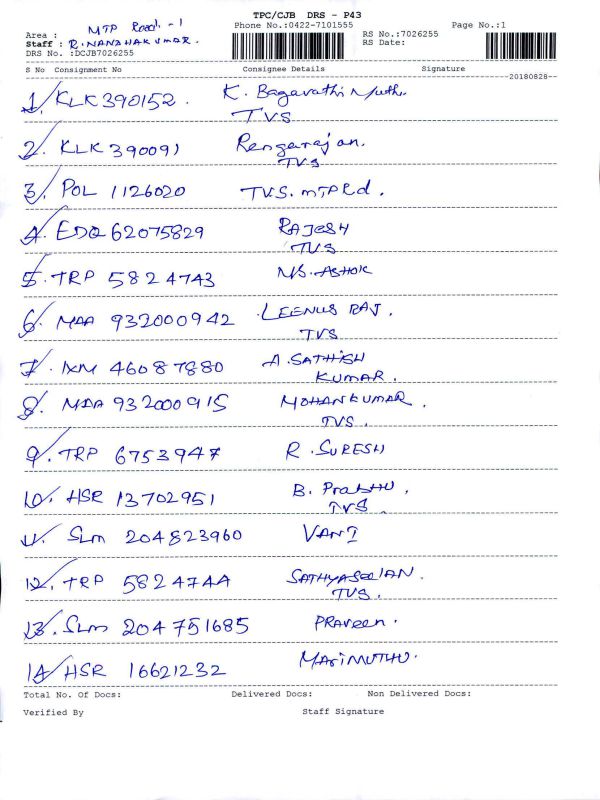 TPC/CJB DRS - P43
Phone No.:0422-7101555 Page No.:1
Area : MTP Road. - 1
RS No.:7026255
Staff : R.NANDHAKUMAR.
RS Date:
DRS No. :DCJB7026255
S No Consignment No Consignee Details Signature
20180828--
1. KLK 390152. K. Bagavathi Muthu.
TVS
2. KLK 390091 Rengarajan.
TVS
3. POL 1126020 TVS. MTPRd.
4. EDQ 62075829 RAJESH
TVS
5. TRP 5824743 N.S. ASHOK
6. MAA 932000942 LEENUS RAJ.
TVS
7. IXM 46087880 A. SATHISH
KUMAR.
8. MAA 932000915 MOHANKUMAR
TVS.
9. TRP 6753947 R. SURESH
10. HSR 13702951 B. Prabhu.
TVS
11. SLM 204823960 VANI
12. TRP 5824744 SATHYASEELAN.
TVS.
13. SLM 204751685 PRAVEEN.
14. HSR 16621232 MARIMUTHU.
Total No. Of Docs: Delivered Docs: Non Delivered Docs:
Verified By Staff Signature